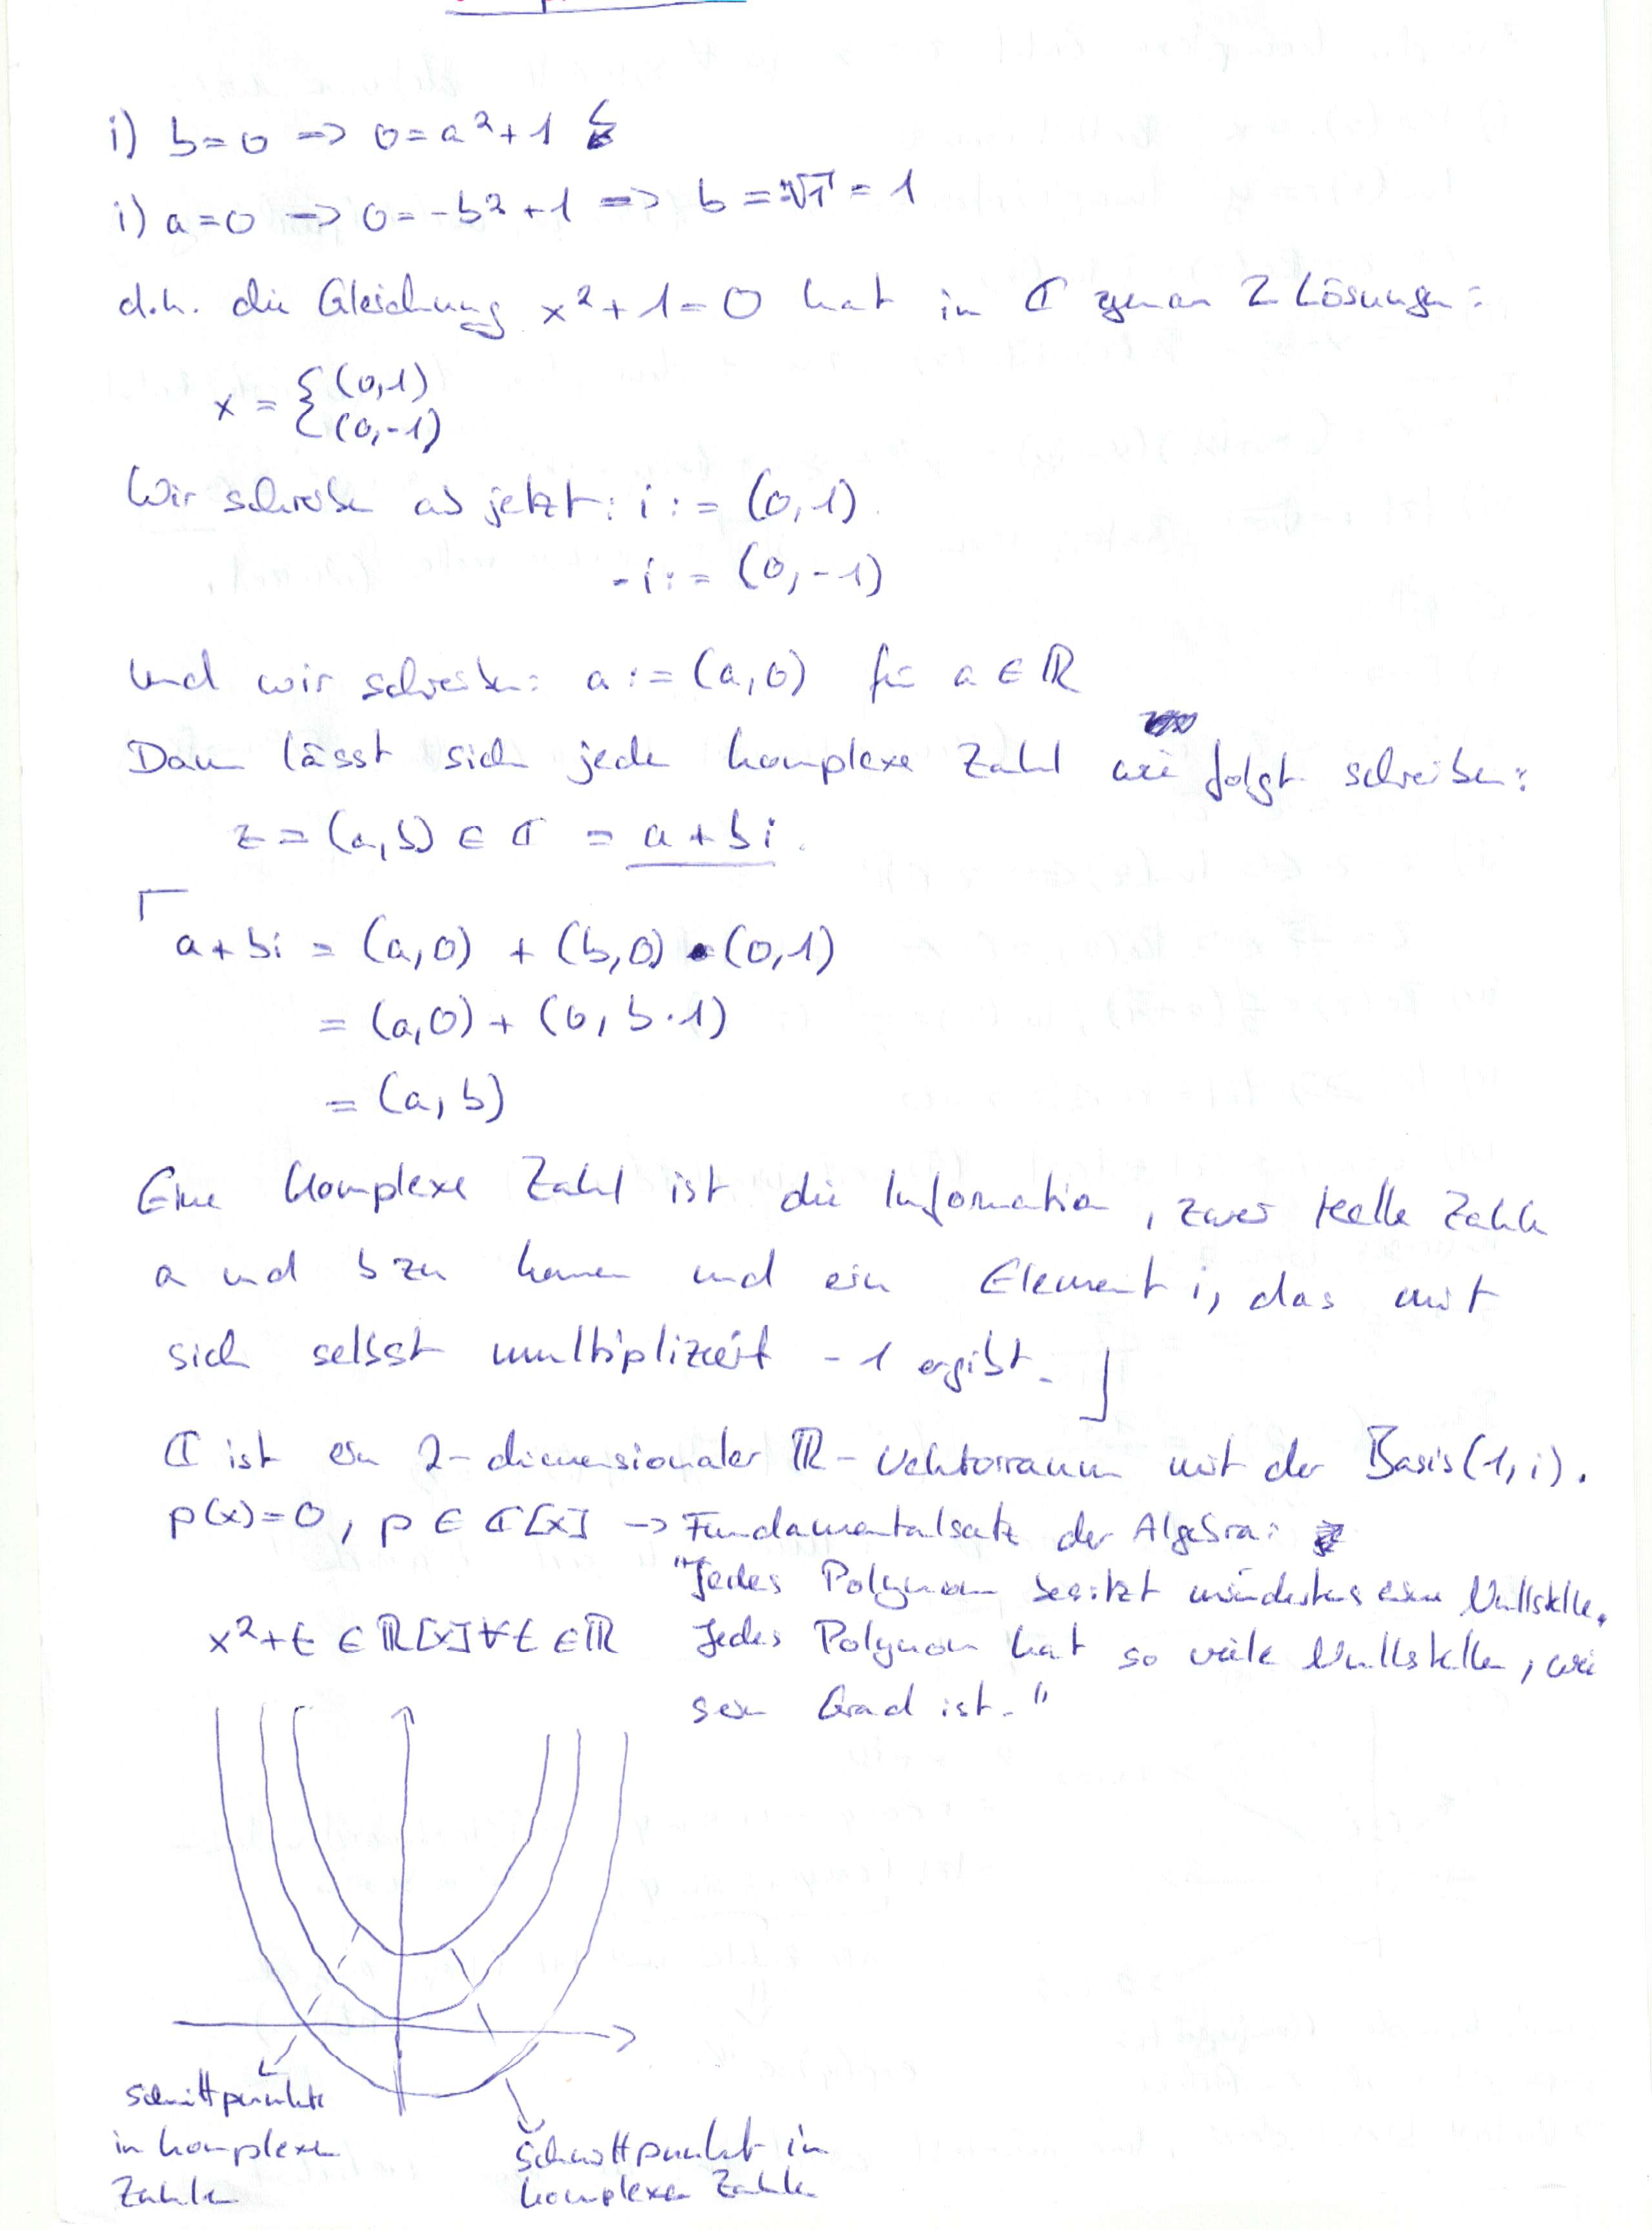 i) b=0 => 0=a²+1 ↯
i) a=0 => 0=-b²+1 => b = ±√1 = 1
d.h. die Gleichung x²+1=0 hat in ℂ genau 2 Lösungen:
x = { (0,1)
(0,-1)
Wir schreiben ab jetzt: i := (0,1).
-i := (0,-1)
Und wir schreiben: a := (a,0) für a ∈ ℝ
Dann lässt sich jede komplexe Zahl wie folgt schreiben:
z = (a,b) ∈ ℂ = a + bi.
a + bi = (a,0) + (b,0) • (0,1)
= (a,0) + (0, b·1)
= (a,b)
Eine komplexe Zahl ist die Information, zwei reelle Zahlen
a und b zu kennen und ein Element i, das mit
sich selbst multipliziert -1 ergibt.
ℂ ist ein 2-dimensionaler ℝ-Vektorraum mit der Basis (1,i).
p(x)=0, p ∈ ℂ[x] -> Fundamentalsatz der Algebra:
"Jedes Polynom besitzt mindestens eine Nullstelle.
x²+t ∈ ℝ[x] ∀t ∈ ℝ Jedes Polynom hat so viele Nullstellen, wie
sein Grad ist."
Schnittpunkte
in komplexen
Zahlen
Schnittpunkt in
komplexen Zahlen